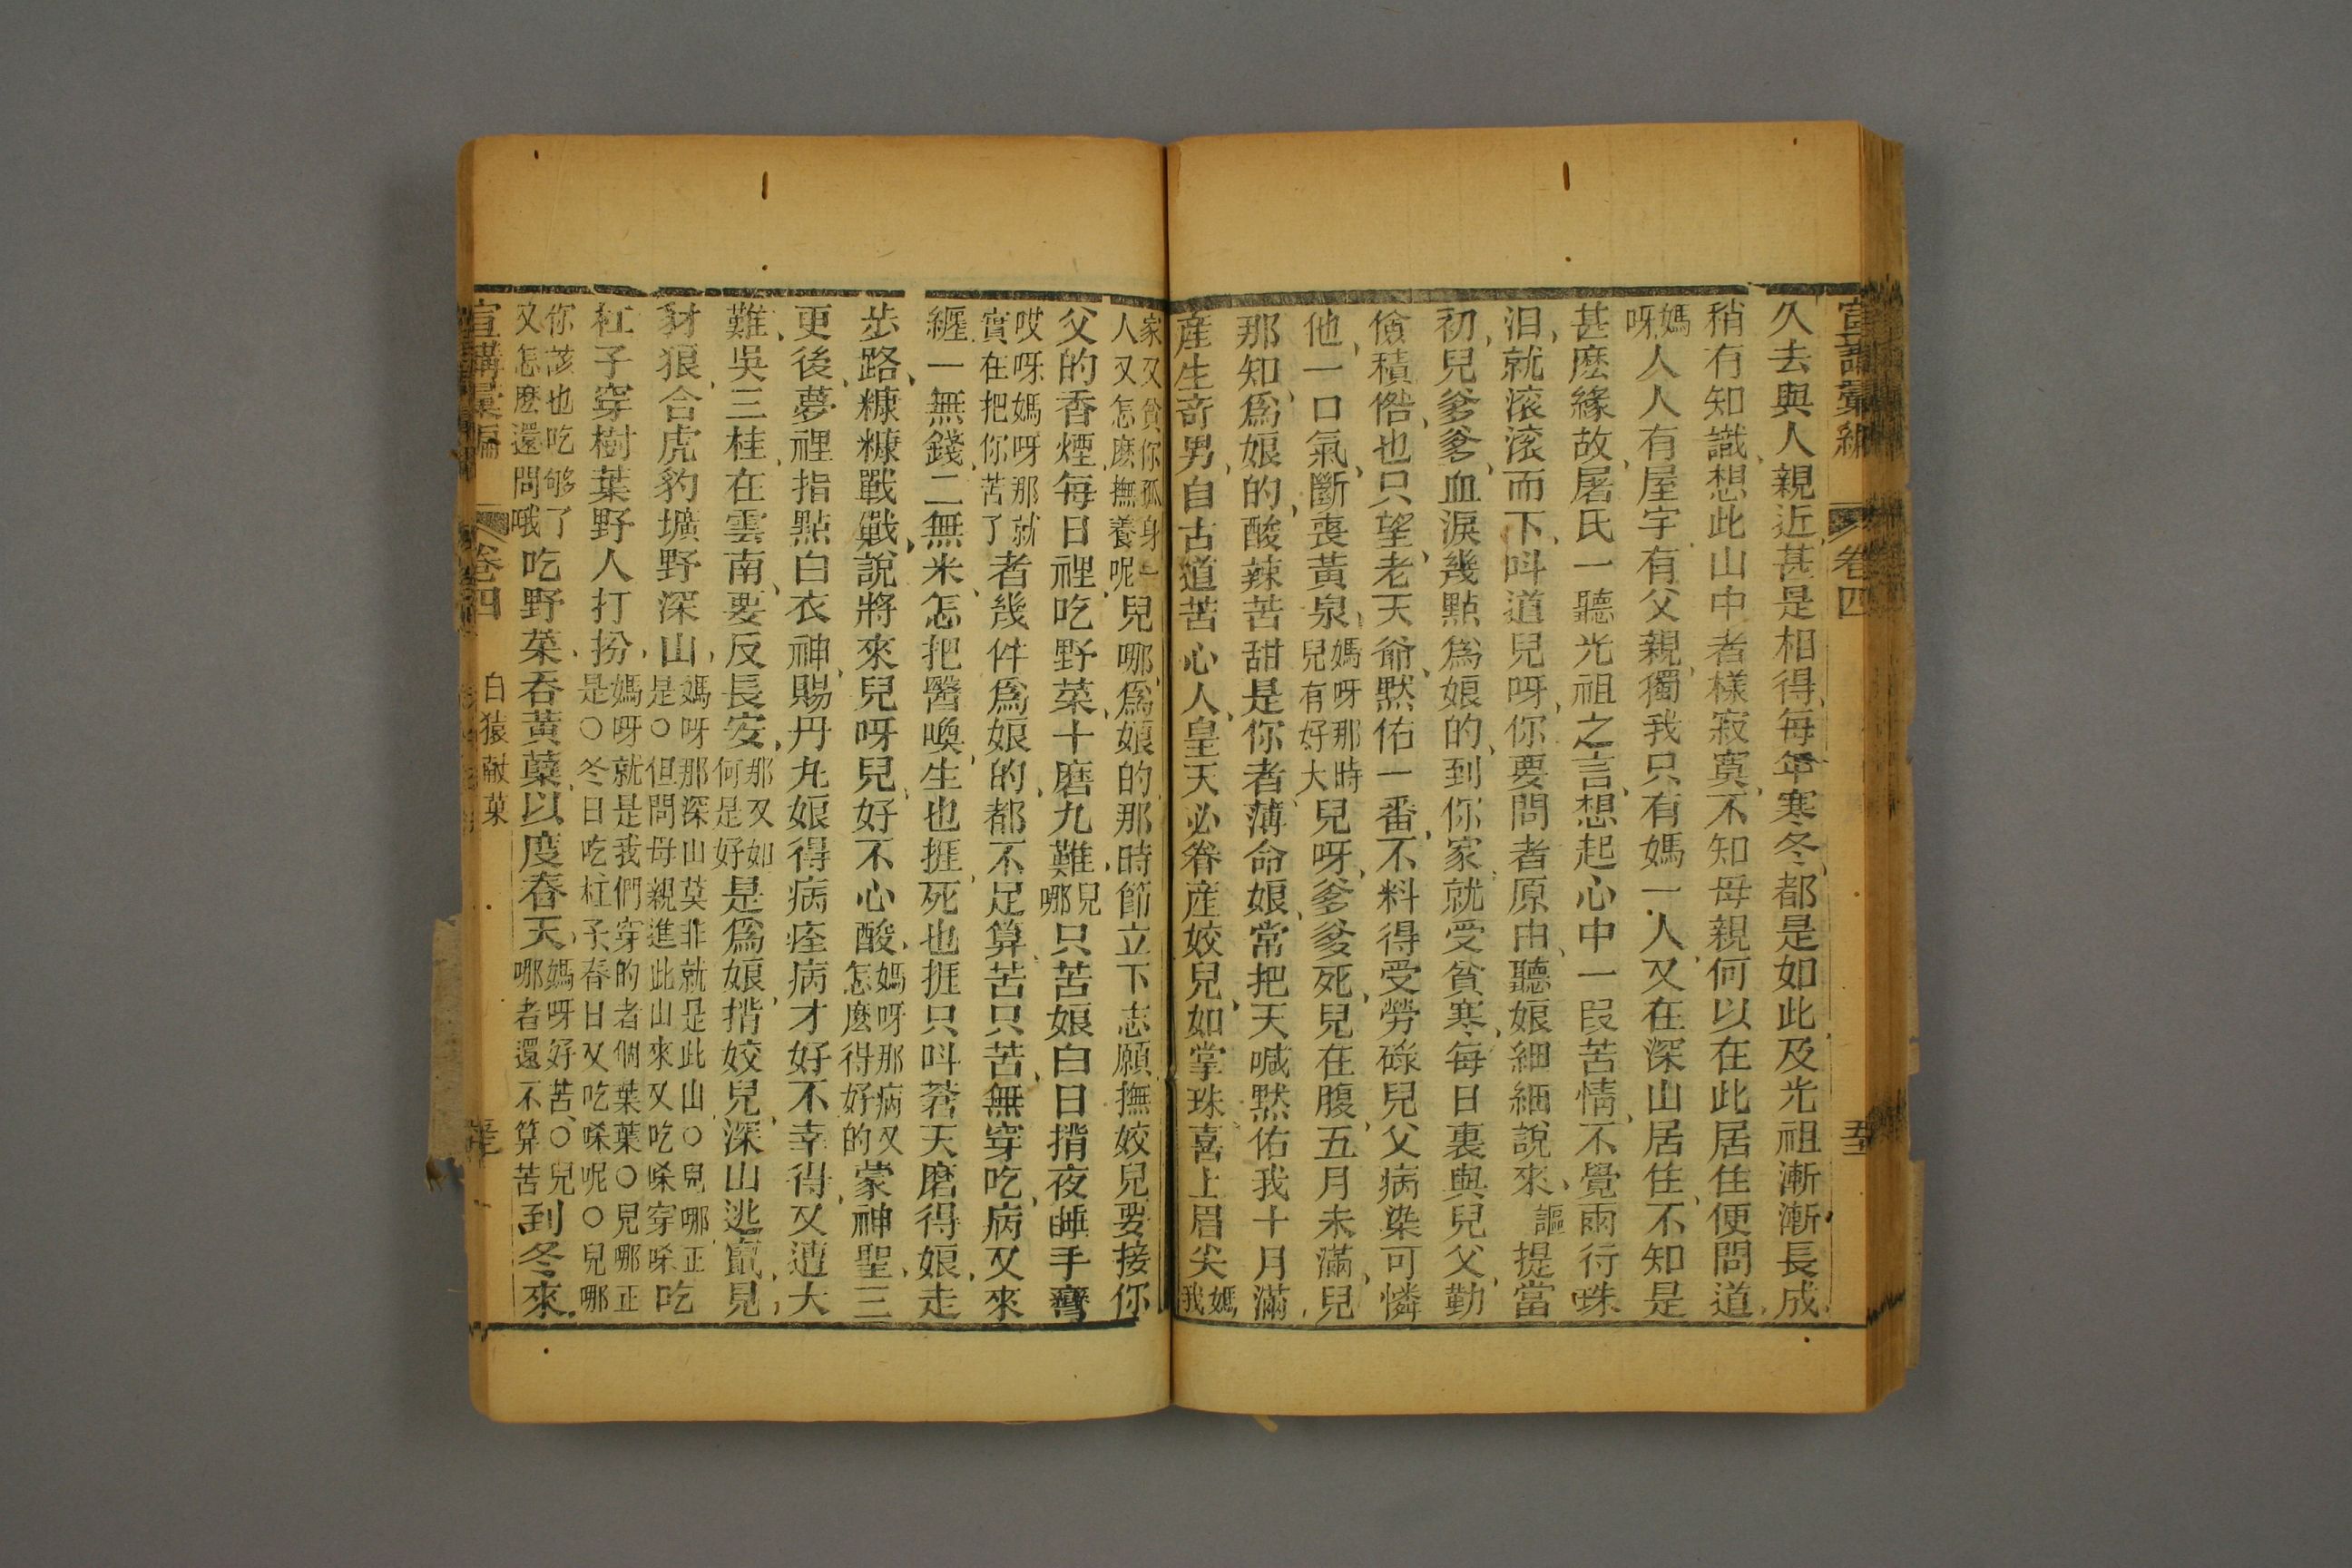 宣講彙編 卷四
久去與人親近甚是相得每年寒冬都是如此及光祖漸漸長成
稍有知識想此山中者樣寂寞不知母親何以在此居住便問道
媽呀人人有屋宇有父親獨我只有媽一人又在深山居住不知是
甚麼緣故屠氏一聽光祖之言想起心中一段苦情不覺雨行珠
泪就滚滚而下呌道兒呀你要問者原由聽娘細細說來謳提當
初兒爹爹血淚幾點為娘的到你家就受貧寒每日裏與兒父勤
儉積偺也只望老天爺黙佑一番不料得受勞碌兒父病染可憐
他一口氣斷喪黃泉媽呀那時兒有好大兒呀爹爹死兒在腹五月未滿兒
那知為娘的酸辣苦甜是你者薄命娘常把天喊黙佑我十月滿
産生奇男自古道苦心人皇天必眷産姣兒如掌珠喜上眉尖媽我
家又貧你孤身一人又怎麽撫養呢兒哪為娘的那時節立下志願撫姣兒要接你
父的香煙每日裡吃野菜十磨九難兒哪只苦娘白日揹夜睡手彎
哎呀媽呀那就實在把你苦了者幾件為娘的都不足算苦只苦無穿吃病又來
纒一無錢二無米怎把醫喚生也捱死也捱只呌蒼天磨得娘走
步路糠糠戰戰說將來兒呀兒好不心酸媽呀那病又怎麽得好的蒙神聖三
更後夢裡指點白衣神賜丹丸娘得病痊病才好不幸得又遭大
難吳三桂在雲南要反長安那又如何是好是為娘揹姣兒深山逃竄見
豺狼合虎豹壙野深山媽呀那深山莫非就是此山○兒哪正是○但問母親進此山來又吃啥穿啥吃
杠子穿樹葉野人打扮媽呀就是我們穿的者個葉葉○兒哪正是○冬日吃杠子春日又吃啥呢○兒哪
你該也吃够了又怎麽還問哦吃野菜吞黃蘗以度春天媽呀好苦○兒哪者還不算苦到冬來
宣講彙編 卷四 白猿献菓